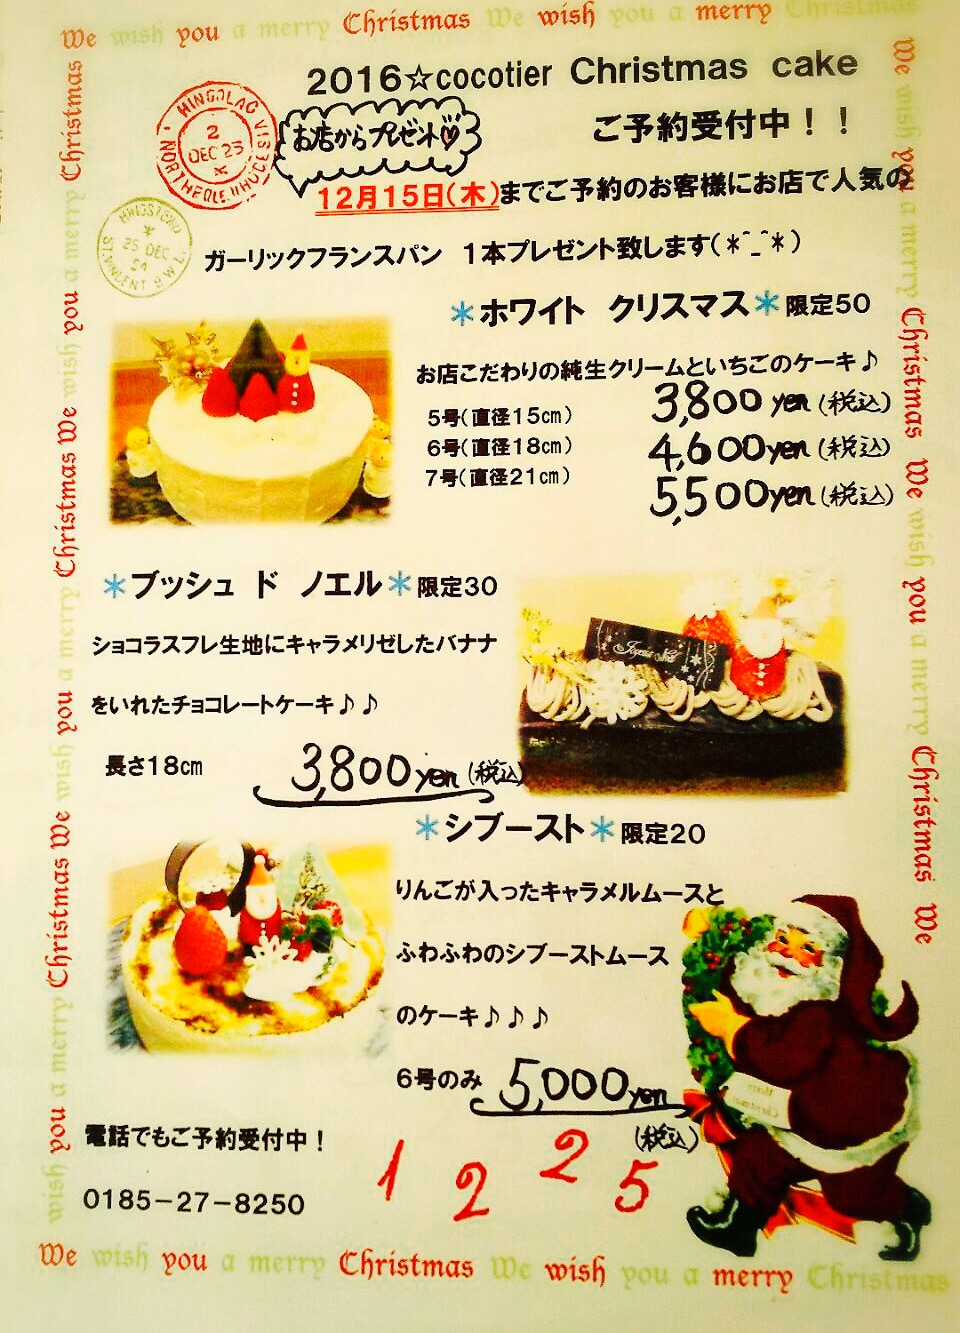 We wish you a merry Christmas We wish you a merry Christmas
2016☆cocotier Christmas cake
ご予約受付中！！
お店からプレゼント♡
12月15日(木)までご予約のお客様にお店で人気の
ガーリックフランスパン 1本プレゼント致します(*^_^*)
2
DEC 25
25 DEC
54
ST.VINCENT
＊ホワイト クリスマス＊限定50
お店こだわりの純生クリームといちごのケーキ♪
5号(直径15㎝) 3,800yen(税込)
6号(直径18㎝) 4,600yen(税込)
7号(直径21㎝) 5,500yen(税込)
＊ブッシュ ド ノエル＊限定30
ショコラスフレ生地にキャラメリゼしたバナナ
をいれたチョコレートケーキ♪♪
長さ18㎝ 3,800yen(税込)
＊シブースト＊限定20
りんごが入ったキャラメルムースと
ふわふわのシブーストムース
のケーキ♪♪♪
6号のみ 5,000yen
(税込)
電話でもご予約受付中！
0185-27-8250
1225
We wish you a merry Christmas We wish you a merry Christmas
wish you a merry Christmas We wish you a merry Christmas We wish you a merry Christmas
We wish you a merry Christmas We wish you a merry Christmas We